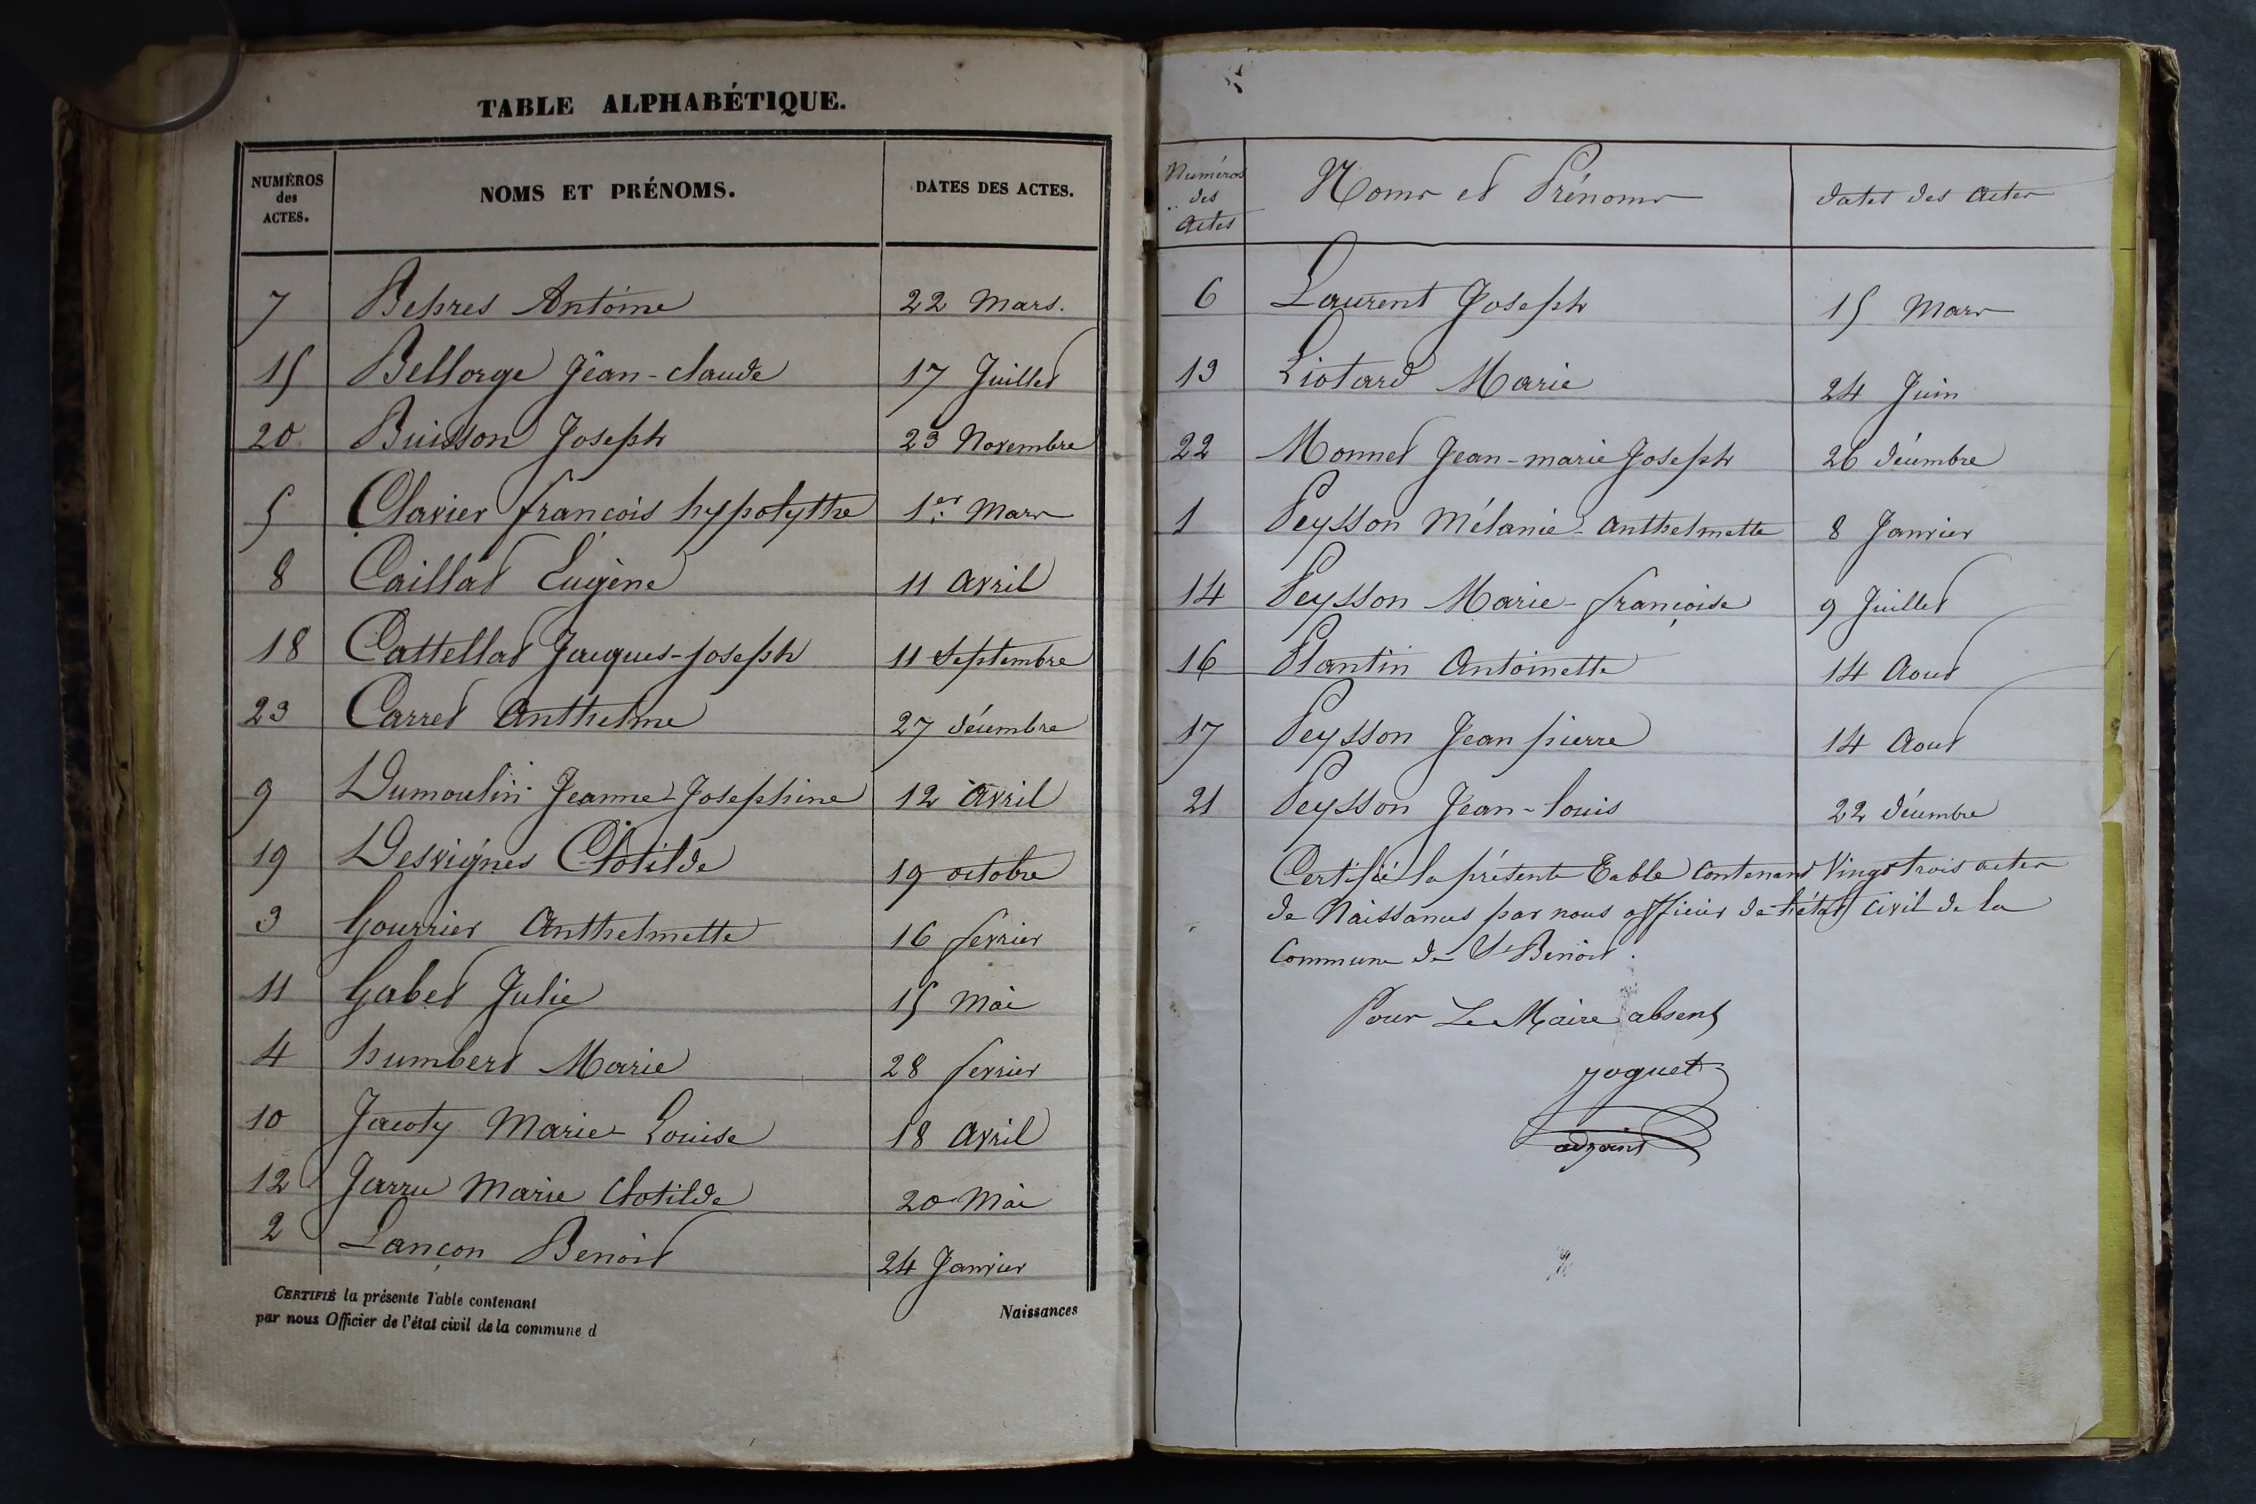 TABLE ALPHABÉTIQUE.
NUMÉROS des ACTES. NOMS ET PRÉNOMS. DATES DES ACTES.
7 Bespres Antoine 22 Mars.
15 Bellorge Jêan-claude 17 Juillet
20 Buisson Joseph 23 Novembre
5 Clavier françois hyppolythe 1er Mars
8 Caillat Eugène 11 avril
18 Cattellat Jacques-joseph 11 Septembre
23 Carret Anthelme 27 décembre
9 Dumoulin Jeanne-Josephine 12 avril
19 Desvignes Clotilde 19 octobre
3 Gourrier Anthelmette 16 fevrier
11 Gabet Julie 15 Mai
4 humbert Marie 28 fevrier
10 Jacoty Marie-Louise 18 avril
12 Jarru Marie Clotilde 20 Mai
2 Lançon Benoit 24 Janvier
CERTIFIÉ la présente Table contenant Naissances
par nous Officier de l'état civil de la commune d
Numéros des Actes Noms et Prénoms dates des actes
6 Laurent Joseph 15 Mars
13 Liotard Marie 24 Juin
22 Monnet Jean-marie Joseph 26 décembre
1 Peysson Mélanie-anthelmette 8 Janvier
14 Peysson Marie-françoise 9 Juillet
16 Plantin Antoinette 14 Aout
17 Peysson Jean pierre 14 Aout
21 Peysson Jean-louis 22 décembre
Certifié la présente Table contenant Vingt trois actes
de Naissances par nous officier de l'état civil de la
Commune de St Benoit.
Pour Le Maire absent
joguet
adjoint